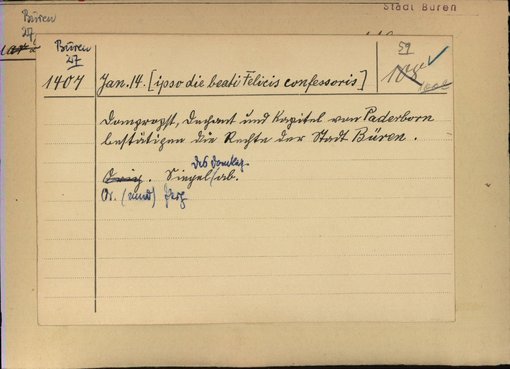 Stadt Büren
Büren
27
Büren
27
59
1407 Jan. 14. [ipso die beati Felicis confessoris]
Dompropst, Dechant und Kapitel von Paderborn
bestätigen die Rechte der Stadt Büren.
des Domkap.
Orig. Siegel ab.
Or. (mbr) Perg